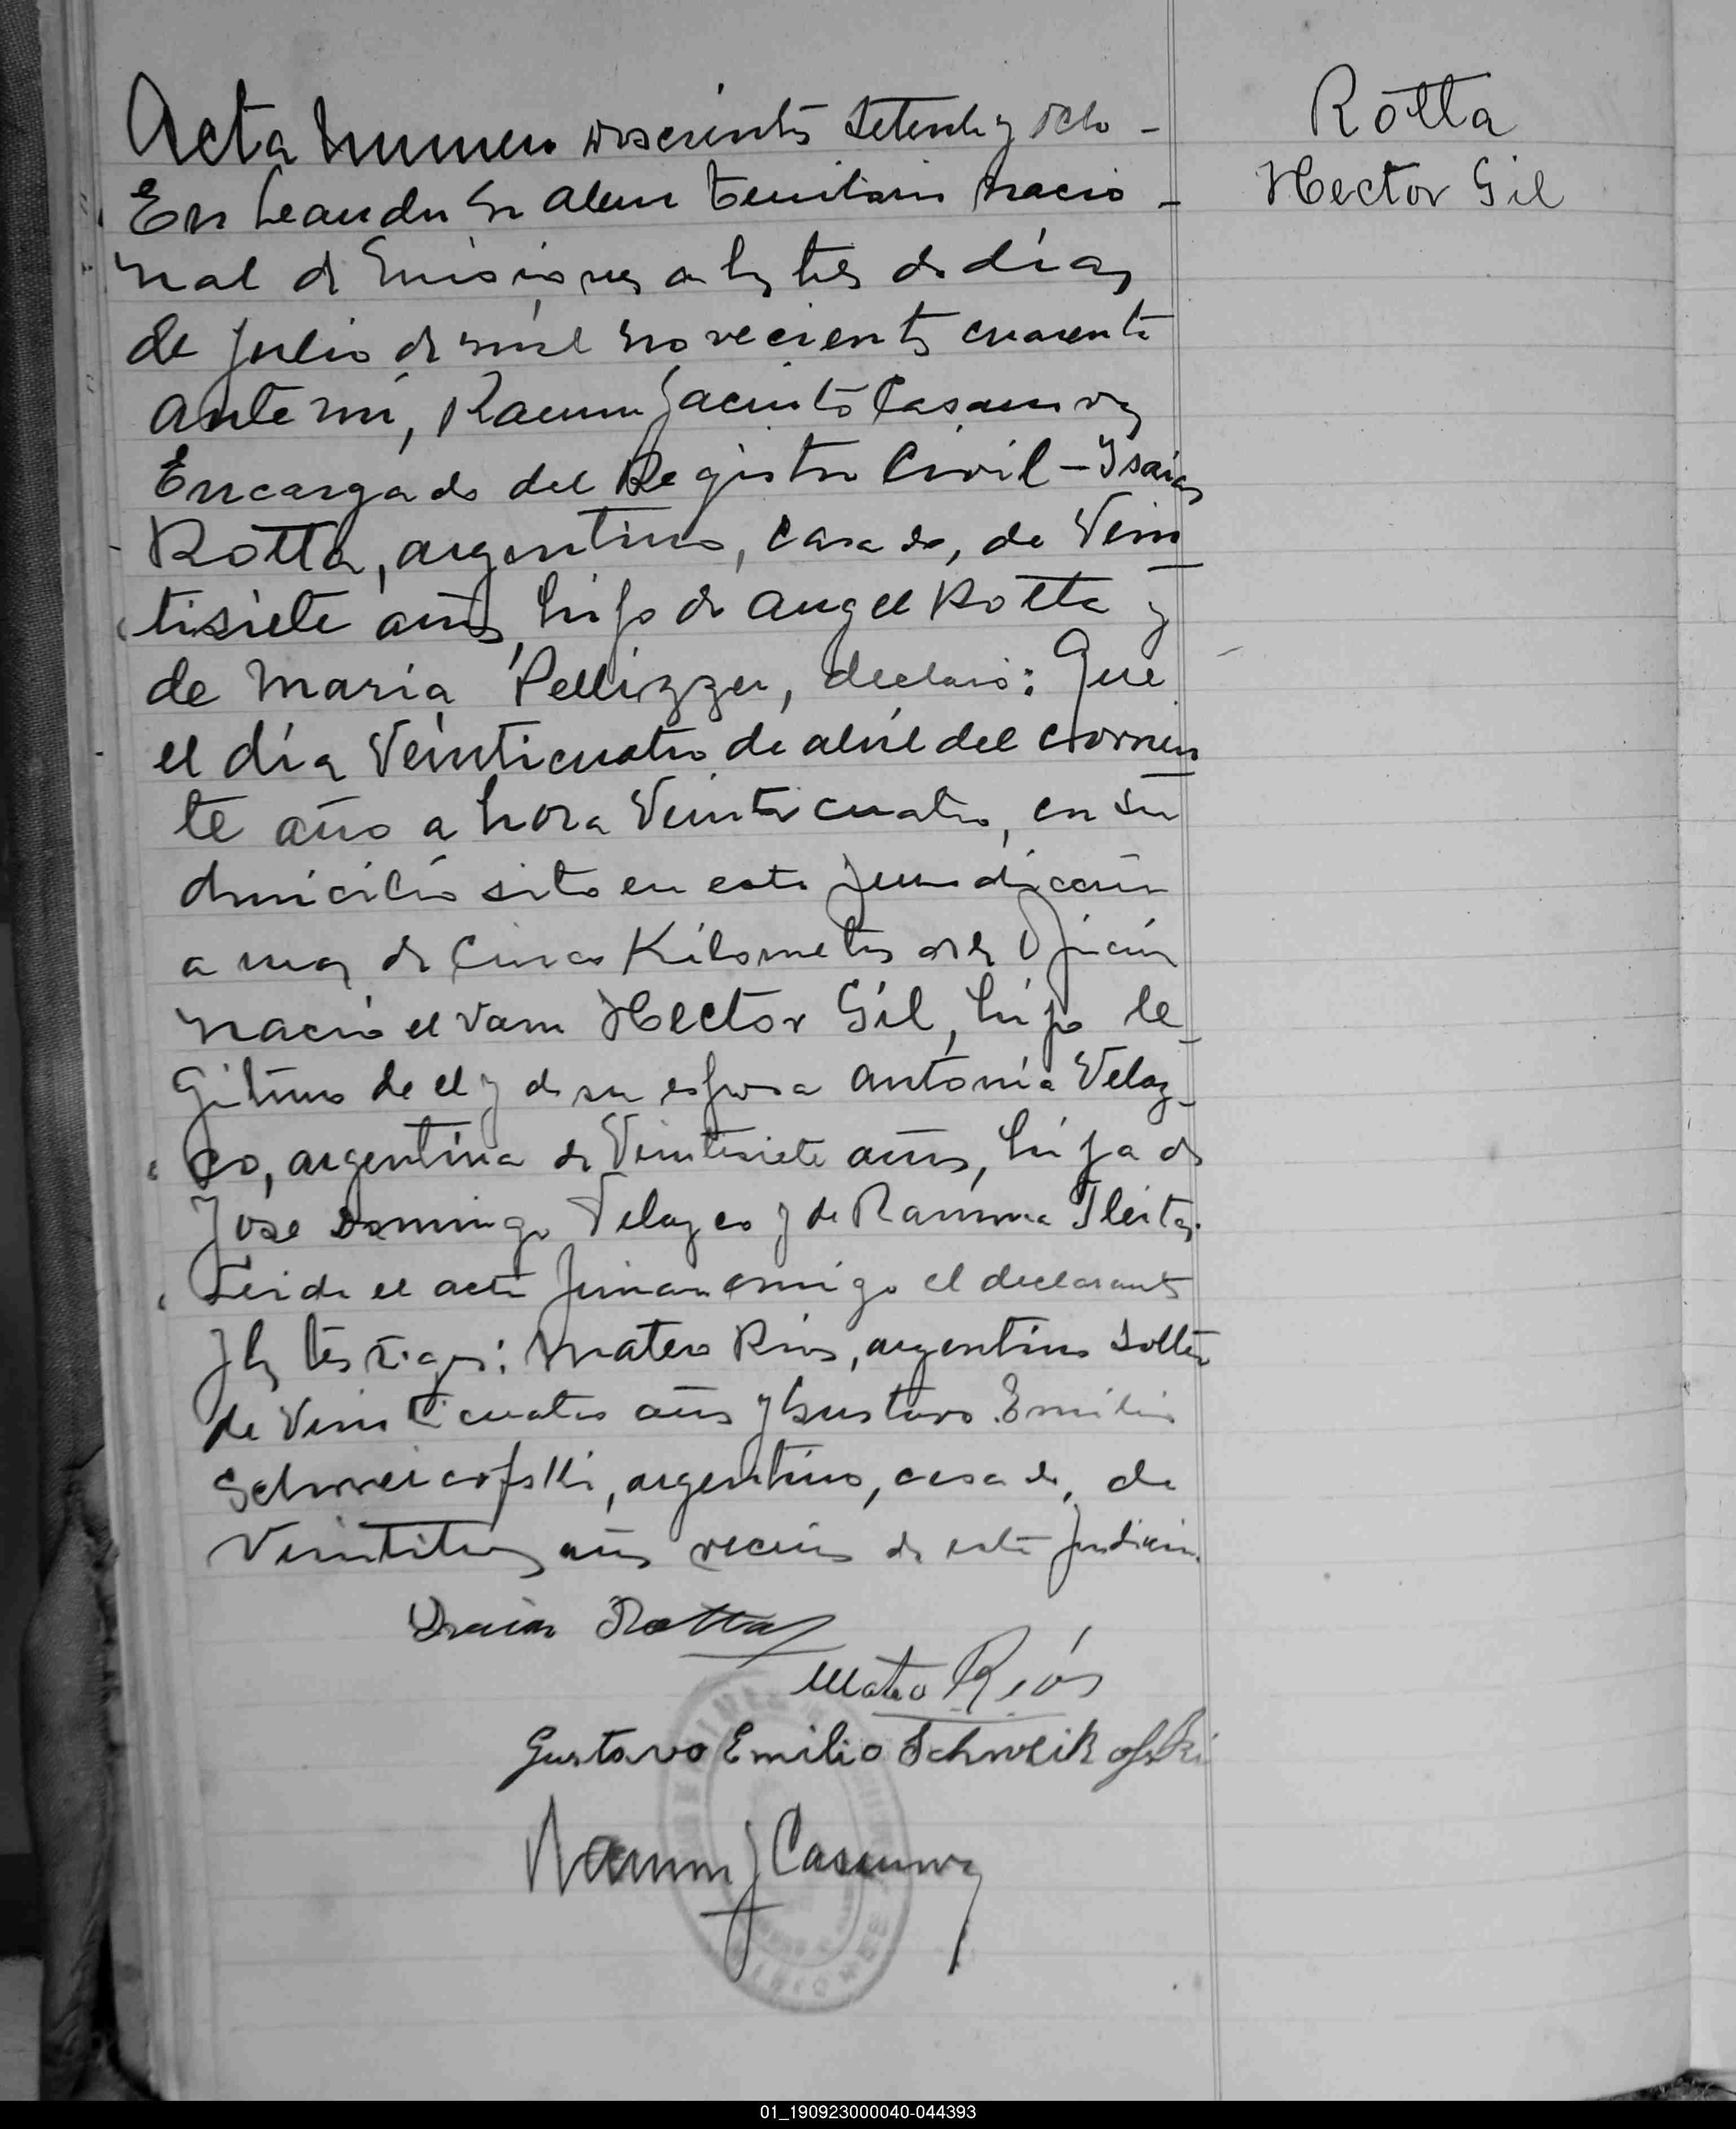 Rotta
Hector Gil
Acta numero doscientos setenta y ocho -
En Leandro N Alem territorio nacio -
nal de Misiones a los tres de días
de julio de mil novecientos cuarenta
ante mí, Ramon Jacinto Casanova
Encargado del Registro Civil - Isaias
Rotta, argentino, casado, de Vein
tisiete años, hijo de Angel Rotta y
de Maria Pellizzer, declaró: Que
el día Veinticuatro de abril del corrien
te año a hora Veinticuatro, en su
domicilio sito en esta jurisdiccion
a mas de Cinco Kilometros de la Oficina
nacio el varon Hector Gil, hijo le-
gitimo de el y de su esposa Antonia Velaz-
co, argentina de Veintisiete años, hija de
Jose Domingo Velazco y de Ramona Fleitas.
Leida el acta firman conmigo el declarante
y los testigos: Mateo Rios, argentino solter
de Veinticuatro años y Gustavo Emilio
Schweicofski, argentino, casado, de
Veintitres años vecinos de esta
Isaias Rotta
Mateo Riós
Gustavo Emilio Schweikofski
Ramon J Casanova
01_190923000040-044393